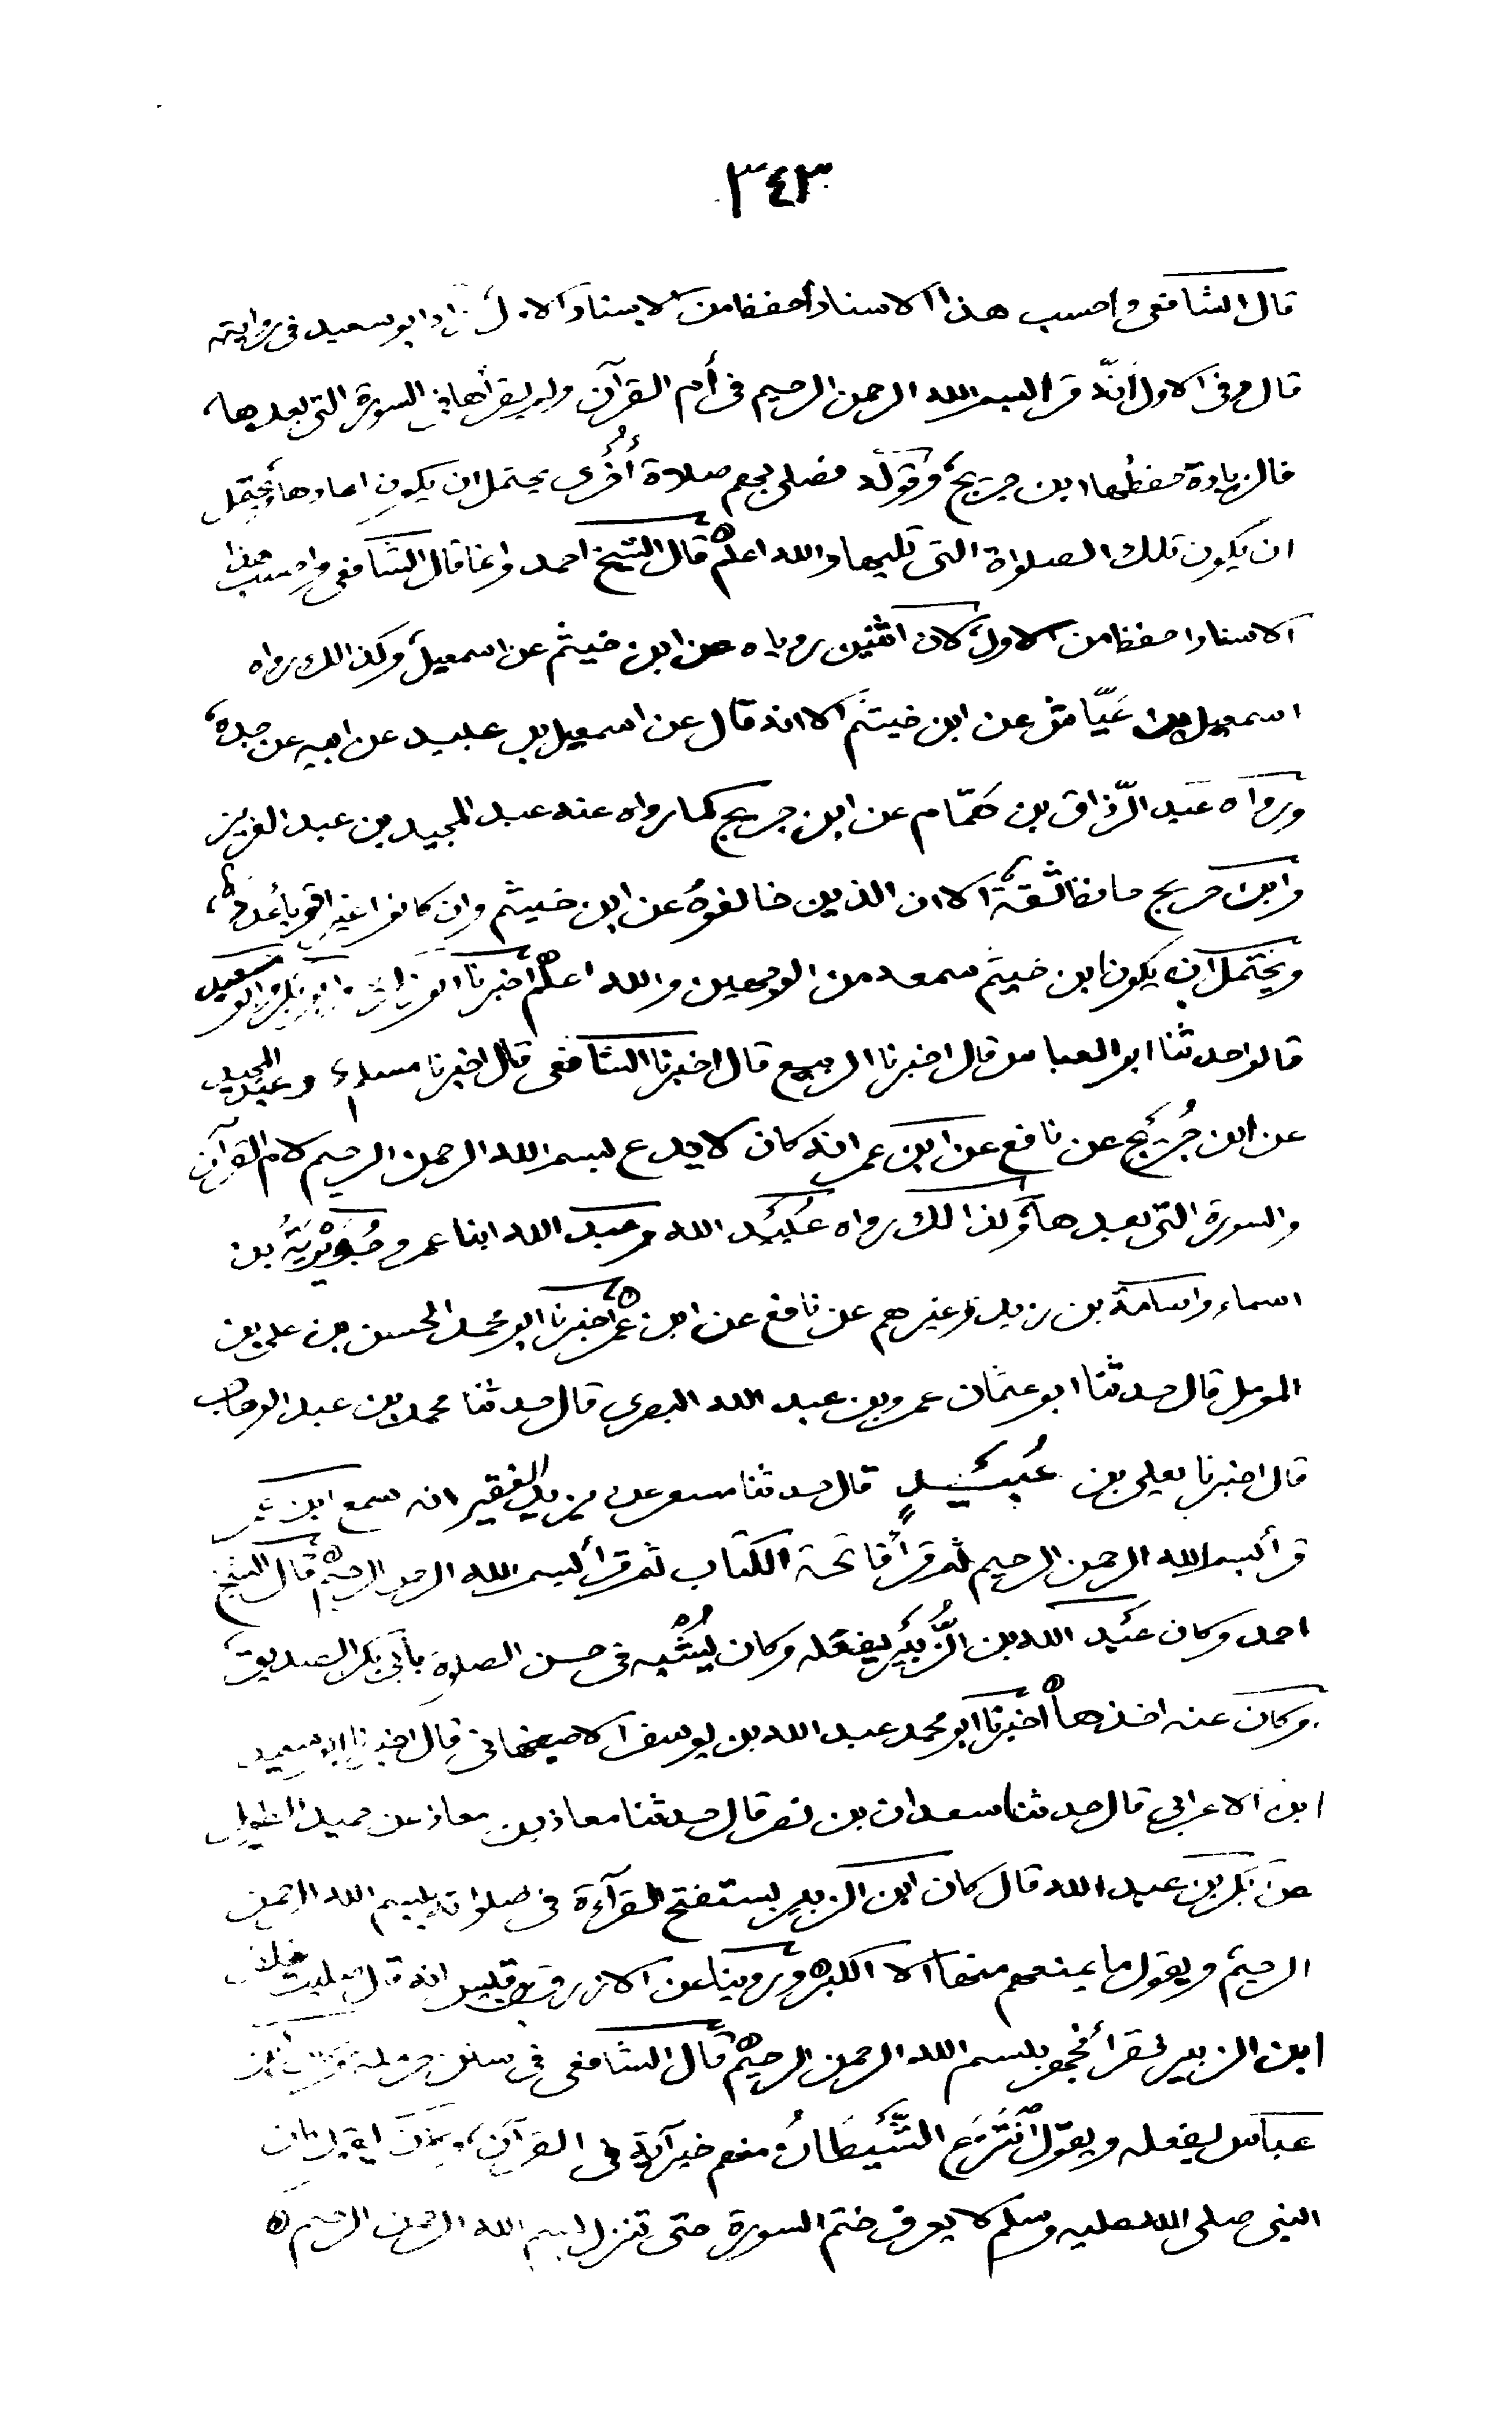 ٣٤٣
قال الشافعى واحسب هذا الاسناد أحفظ من الاسناد الاول زاد ابو سعيد فى روايته
قال وفى الاول أنّه قرأ بسم الله الرحمن الرحيم فى أم القرآن ولم يقرأها فى السورة التى بعدها،
فالزيادة حفظها ابن جريج وقوله فصلى بهم صلاة أُخرى يحتمل ان يكون اعادها ويحتمل
ان يكون تلك الصلواة التى تليها والله اعلم قال الشيخ احمد وانما قال الشافعى واحسب هذا
الاسناد احفظ من الاول لان اثنين روياه عن ابن خيثم عن اسمعيل وكذالك رواه
اسمعيل بن عَيّاش عن ابن خيثم الا انه قال عن اسمعيل بن عبيد عن ابيه عن جده،
ورواه عبد الرّزاق بن همّام عن ابن جريج كما رواه عنه عبد المجيد بن عبد العزيز
وابن جريج حافظ ثقة الا ان الذين خالفوهُ عن ابن خيثم وان كانوا غير اقوياء عدد،
ويحتمل ان يكون ابن خيثم سمعه من الوجهين والله اعلم اخبرنا ابو زكريا وابو بكر وابو سعيد
قالوا حدثنا ابو العباس قال اخبرنا الربيع قال اخبرنا الشافعى قال اخبرنا مسلم وعبد المجيد
عن ابن جُريج عن نافع عن ابن عمر انه كان لا يدع بسم الله الرحمن الرحيم لام القرآن
والسورة التى بعدها وكذالك رواه عُبيد الله وعبد الله ابنا عمر وجُوَيْريَةُ بن
اسماء واسامة بن زيد وغيرهم عن نافع عن ابن عمر اخبرنا ابو محمد الحسن بن على بن
المومل قال حدثنا ابو عثمان عمرو بن عبد الله البصرى قال حدثنا محمد بن عبد الوهاب
قال اخبرنا يعلى بن عُبيدٍ قال حدثنا مسعر عن يزيد الفقير انه سمع ابن عمر
قرأ بسم الله الرحمن الرحيم ثم قرأ فاتحة الكتاب ثم قرأ بسم الله الرحمن الرحيم قال الشيخ
احمد وكان عبد الله بن الزُّبير يفعله وكان يُشْبِه فى حسن الصلوة بأبى بكر الصديق
وكان عنه اخذها اخبرنا ابو محمد عبد الله بن يوسف الاصبهانى قال اخبرنا ابو سعيد
ابن الاعرابى قال حدثنا سعدان بن نصر قال حدثنا معاذ بن معاذ عن حميد الطويل
عن بكر بن عبد الله قال كان ابن الزبير يستفتح القرآءة فى صلواته ببسم الله الرحمن
الرحيم ويقول ما يمنعهم منها الا الكبر وروينا عن الازرق بن قيس انه قال صليت خلف
ابن الزبير فقرأ فجهر ببسم الله الرحمن الرحيم قال الشافعى فى سنن حرملة وكان ابن
عباس يفعله ويقول انْتَزَع الشَّيطَانُ منهم خير آية فى القرآن، ويقول كان
النبى صلى الله عليه وسلم لا يعرف ختم السورة حتى تنزل بسم الله الرحمن الرحيم